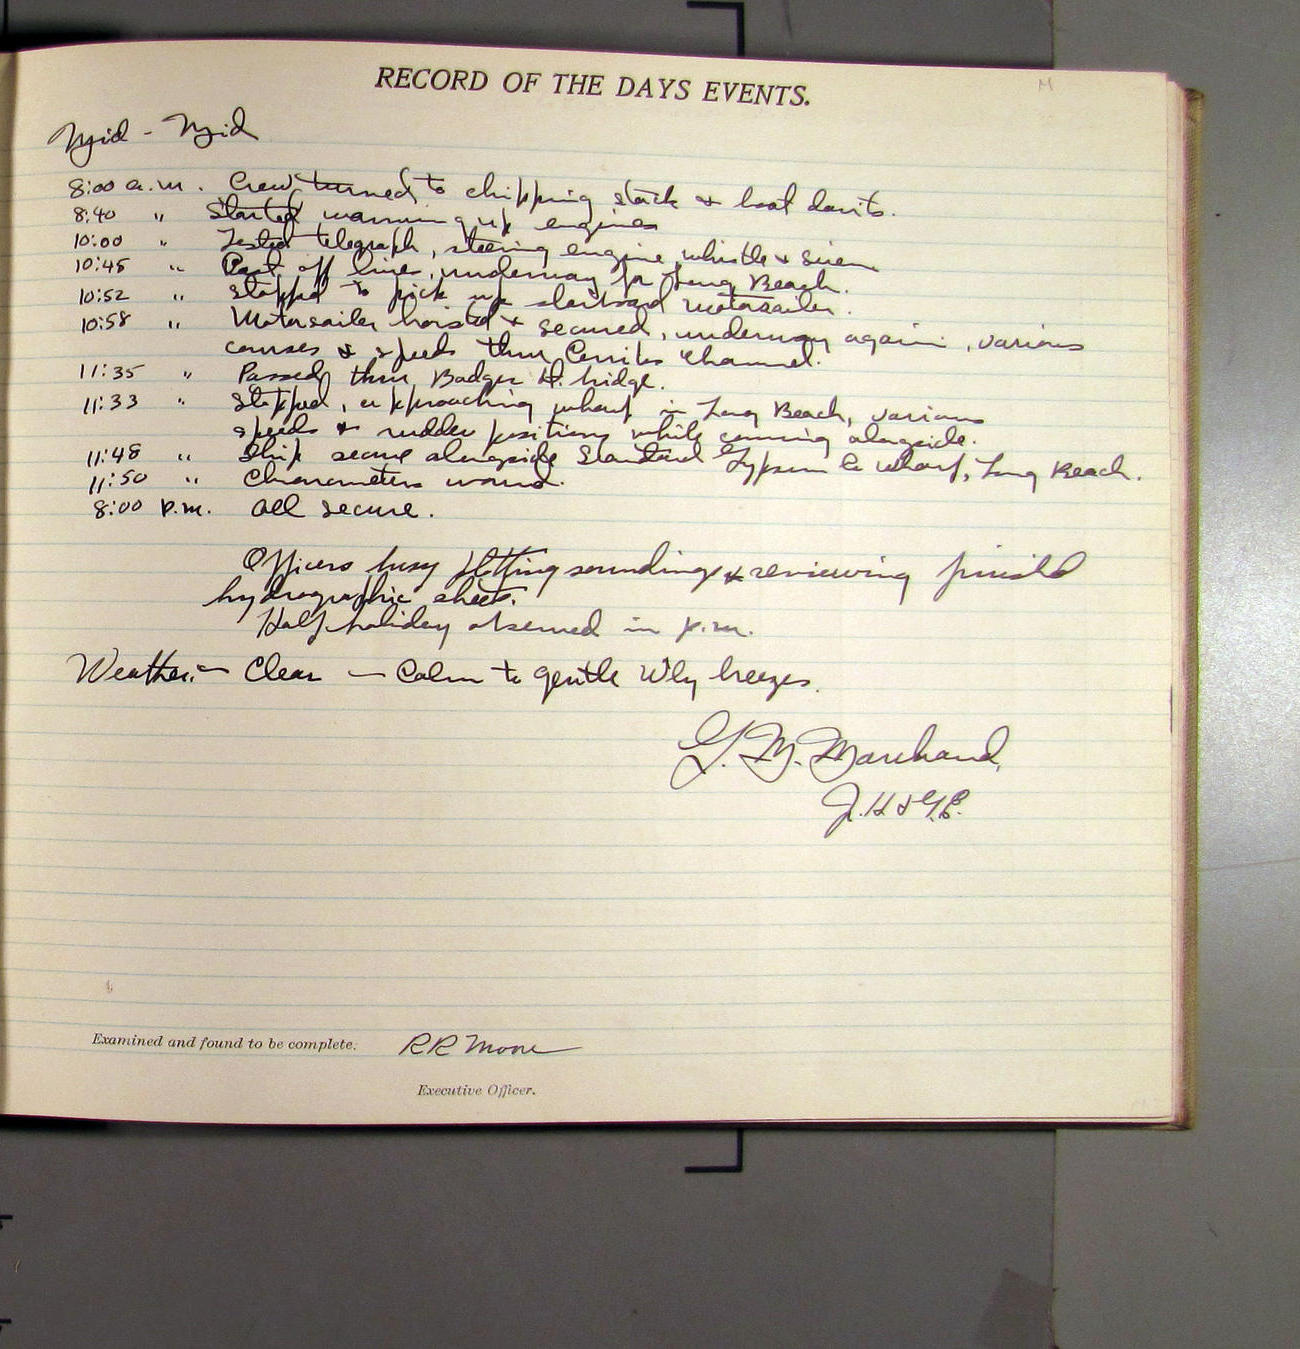 RECORD OF THE DAYS EVENTS.
Mid - Mid
8:00 a.m. Crew turned to chipping stack & boat davits.
8:40 " Started warming up engines
10:00 " Tested telegraph, steering engine, whistle & siren
10:45 " Cast off lines, underway for Long Beach.
10:52 " Stopped to pick up starboard motorsailer.
10:58 " Motorsailer hoisted & secured, underway again, various
courses & speeds thru Cerritos Channel.
11:35 " Passed thru Badger Av. bridge.
11:33 " Stopped, approaching wharf in Long Beach, various
speeds & rudder positions while coming alongside.
11:48 " Ship secure alongside Standard Gypsum Co wharf, Long Beach.
11:50 " Chronometers wound.
8:00 p.m. All secure.
Officers busy plotting soundings & reviewing finished
hydrographic sheets.
Half-holiday observed in p.m.
Weather:- Clear - Calm to gentle W'ly breezes.
G. M. Marchand,
J. H & G.E.
Examined and found to be complete. RR Moore
Executive Officer.